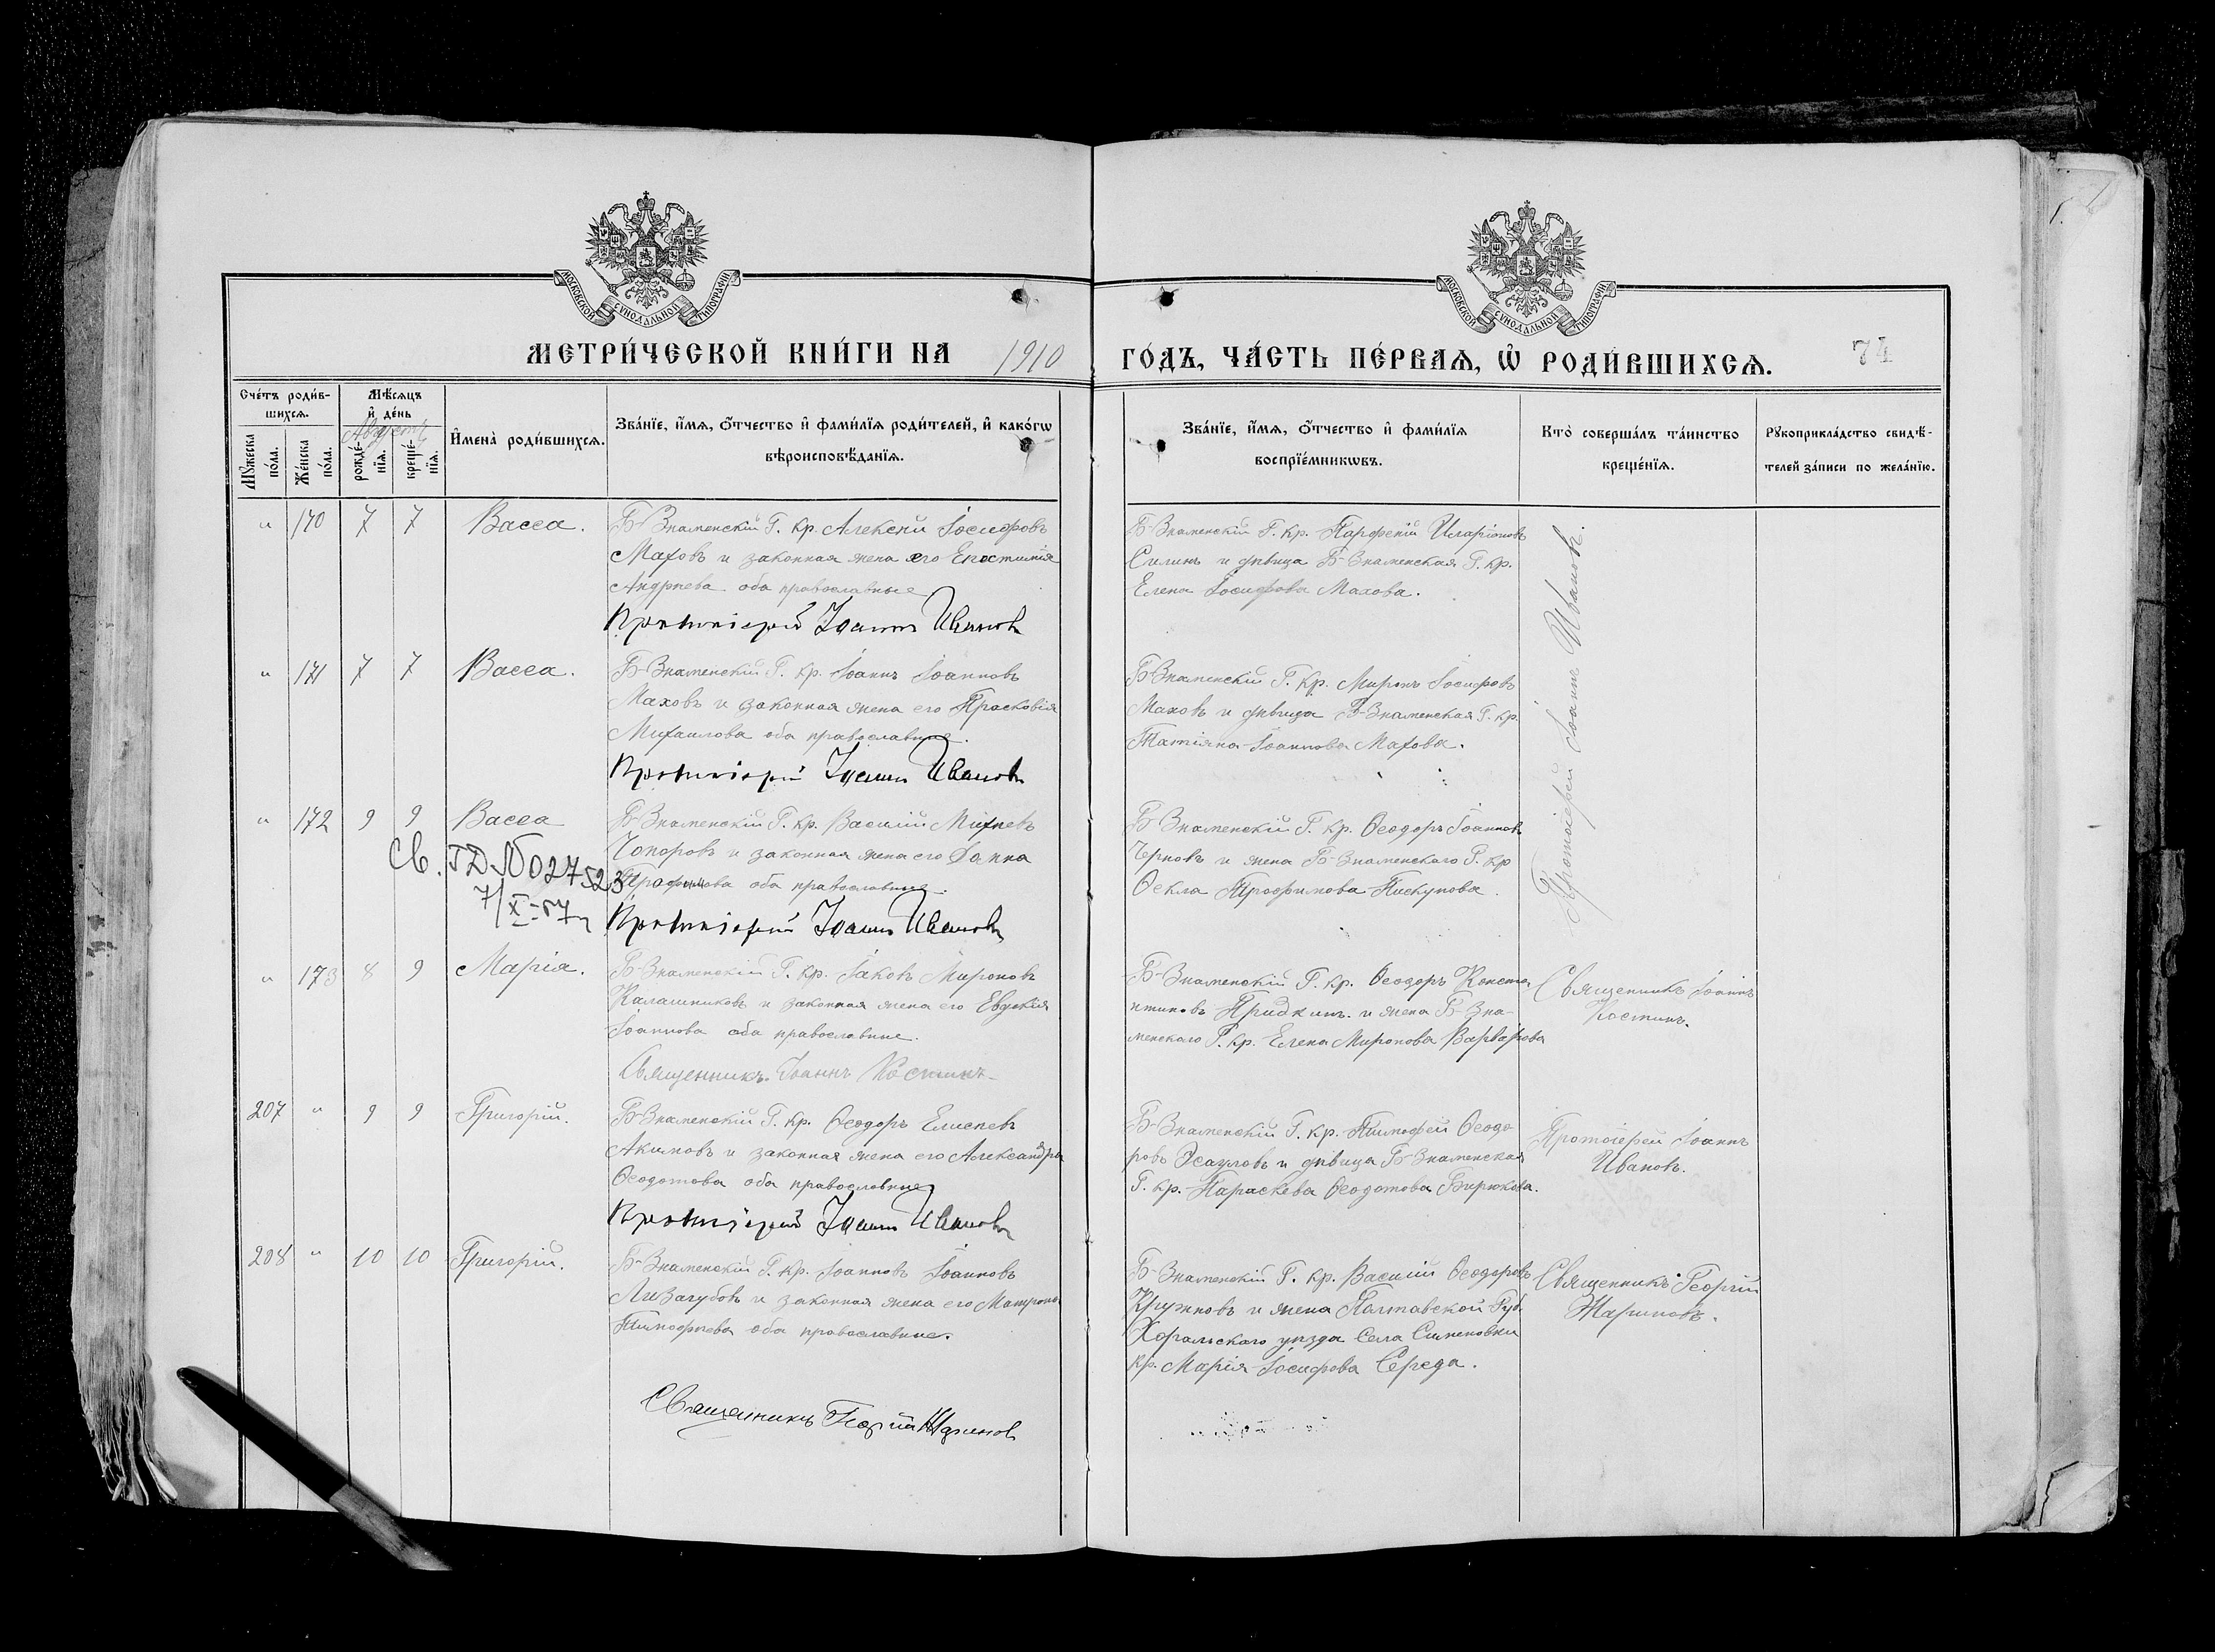 МОСКОВСКОЙ СѴНОДАЛЬНОЙ ТИПОГРАФІИ
МОСКОВСКОЙ СѴНОДАЛЬНОЙ ТИПОГРАФІИ
МЕТРИ́ЧЕСКОЙ КНИ́ГИ НА 1910 ГО́ДЪ, ЧА́СТЬ ПЕ́РВАѦ, Ѡ҆ РОДИ́ВШИХСѦ. 74
Сче́тъ роди́в-
шихсѧ.
Мꙋ́жеска по́ла.
Же́нска по́ла.
Мѣ́сѧцъ
и҆ де́нь
Августъ
рожде́-нїѧ.
креще́-нїѧ.
И҆мена̀ роди́вшихсѧ.
Зва́нїе, и҆́мѧ, ѻ҆́тчество и҆ фами́лїѧ роди́телей, и҆ како́гѡ
вѣроисповѣ́данїѧ.
Зва́нїе, и҆́мѧ, ѻ҆́тчество и҆ фами́лїѧ
воспрїе́мникѡвъ.
Кто̀ соверша́лъ та́инство
креще́нїѧ.
Рꙋкоприкла́дство свидѣ́-
телей за́писи по жела́нїю.
" 170 7 7 Васса.
Б-Знаменскій Г. кр. Алексѣй Іосифовъ
Маховъ и законная жена его Епистимія
Андреева оба православные
Протоіерей Іоаннъ Ивановъ
Б-Знаменскій Г. кр. Парфеній Иларіоновъ
Силинъ и дѣвица Б-Знаменская Г. кр.
Елена Іосифова Махова.
Протоіерей Іоаннъ Ивановъ.
" 171 7 7 Васса.
Б-Знаменскій Г. кр. Іоаннъ Іоанновъ
Маховъ и законная жена его Прасковія
Михаилова оба православные.
Протоіерей Іоаннъ Ивановъ
Б-Знаменскій Г. кр. Миронъ Іосифовъ
Маховъ и дѣвица Б-Знаменская Г. кр.
Татіяна Іоаннова Махова.
" 172 9 9 Васса
св. ГД №027523
7/X-57
Б-Знаменскій Г. кр. Василій Михѣевъ
Чопоровъ и законная жена его Іанна
Трофимова оба православные.
Протоіерей Іоаннъ Ивановъ
Б-Знаменскій Г. кр. Ѳеодоръ Іоанновъ
Черновъ и жена Б-Знаменскаго Г. кр
Ѳекла Трофимова Пискунова.
" 173 8 9 Марія.
Б-Знаменскій Г. кр. Іаковъ Мироновъ
Калашниковъ и законная жена его Евдокія
Іоаннова оба православные.
Священникъ Іоаннъ Костинъ
Б-Знаменскій Г. кр. Ѳеодоръ Конста
нтиновъ Придкинъ. и жена Б-Зна-
менскаго Г. кр. Елена Миронова Варварова
Священникъ Іоаннъ
Костинъ.
207 " 9 9 Григорій.
Б-Знаменскій Г. кр. Ѳеодоръ Елисѣевъ
Акимовъ и законная жена его Александра
Ѳеодотова оба православные
Протоіерей Іоаннъ Ивановъ
Б-Знаменскій Г. кр. Тимофей Ѳеодо
ровъ Эсауловъ и дѣвица Б-Знаменская
Г. кр. Параскева Ѳеодотова Бирюкова.
Протоіерей Іоаннъ
Ивановъ.
208 " 10 10 Григорій.
Б-Знаменскій Г. кр. Іоанновъ Іоанновъ
Лизагубовъ и законная жена его Матрона
Тимофѣева оба православные.
Священникъ Георгій Жариновъ
Б-Знаменскій Г. кр. Василій Ѳеодоровъ
Кружновъ и жена Полтавской Губ.
Хорольскаго уѣзда Села Сименовки
кр. Марія Іосифова Середа.
Священникъ Георгій
Жариновъ.